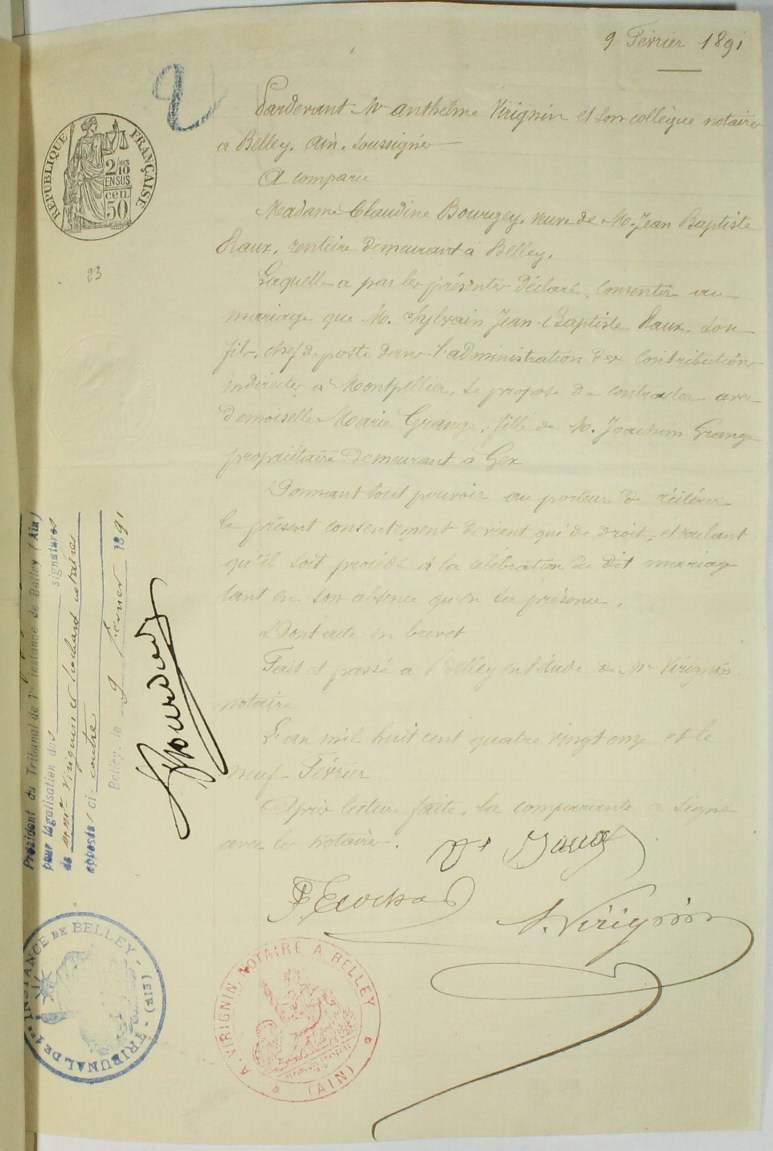 9 Février 1891
2
RÉPUBLIQUE FRANÇAISE
2/10 EN SUS
50 cen.
23
Pardevant Mr Anthelme Virignin et son collègue notaires
à Belley, Ain, soussignés
A comparu
Madame Claudine veuve de M. Jean Baptiste
rentière demeurant à Belley,
Laquelle a par les présentes déclaré consentir au
mariage que M. Sylvain Jean-Baptiste son
fils, chef de poste dans l'administration des Contributions
indirectes à Montpellier, se propose de contracter avec
demoiselle Marie Grange, fille de M. Joachim Grange
propriétaire demeurant à Gex
Donnant tout pouvoir au porteur de réitérer
le présent consentement devant qui de droit, et voulant
qu'il soit procédé à la célébration du dit mariage
tant en son absence qu'en sa présence.
Dont acte en brevet
Fait et passé à Belley en l'étude de Mr Virignin
notaire
L'an mil huit cent quatre vingt onze et le
neuf Février
Après lecture faite, la comparante a signé
avec les notaires.
Ve
A. Virignin
Président du Tribunal de 1re Instance de Belley (Ain)
pour légalisation des signatures
de Virignin et notaires
apposées ci-contre
Belley, le 9 Février 1891
TRIBUNAL DE 1re INSTANCE DE BELLEY - (AIN) -
A. VIRIGNIN, NOTAIRE A BELLEY
(AIN)